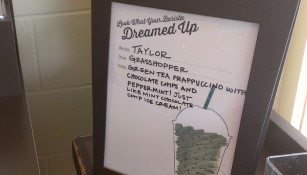 Look What Your Barista
Dreamed Up
Barista: TAYLOR
Drink: GRASSHOPPER
Notes: GREEN TEA FRAPPUCCINO WITH
CHOCOLATE CHIPS AND
PEPPERMINT! JUST
LIKE MINT CHOCOLATE
CHIP ICE CREAM!